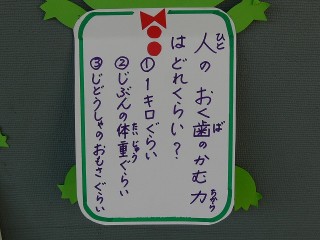 人のおく歯のかむ力
はどれくらい?
①1キロぐらい
②じぶんの体重ぐらい
③じどうしゃのおもさぐらい
ひと
ば
ちから
たいじゅう